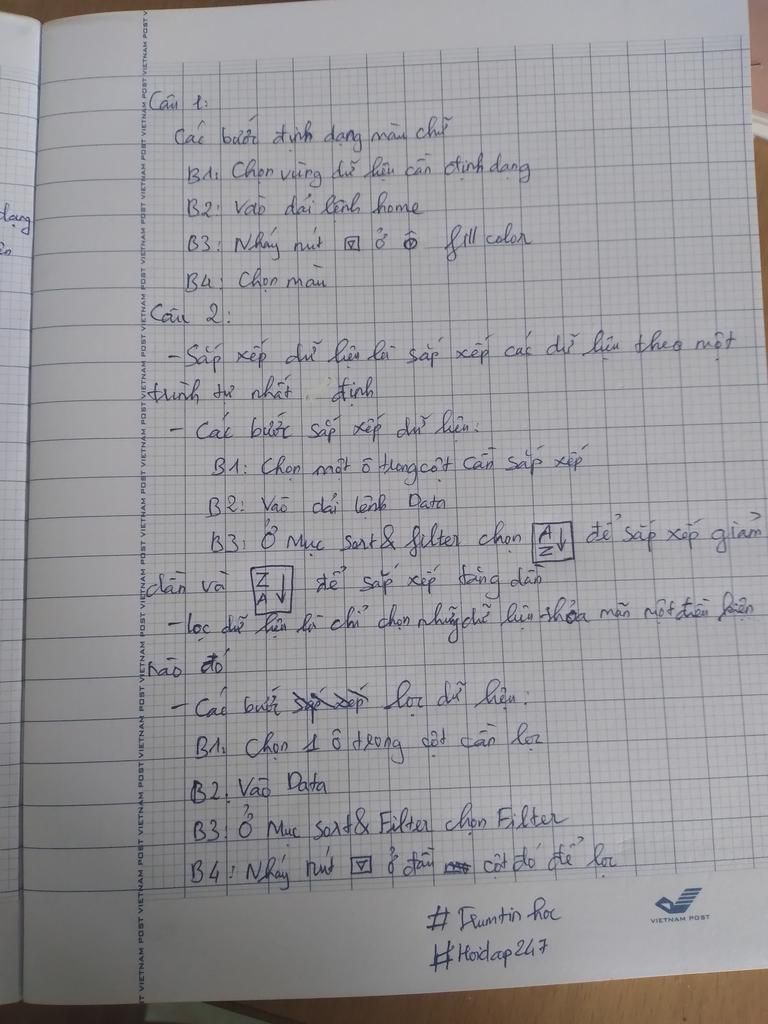 Câu 1:
Các bước định dạng màu chữ
B1: Chọn vùng dữ liệu cần định dạng
B2: Vào dải lệnh home
B3: Nháy nút ▽ ở ô fill color
B4: Chọn màu
Câu 2:
- Sắp xếp dữ liệu là sắp xếp các dữ liệu theo một
trình tự nhất định
- Các bước sắp xếp dữ liệu:
B1: Chọn một ô trong cột cần sắp xếp
B2: Vào dải lệnh Data
B3: Ở Mục Sort & filter chọn A Z ↓ để sắp xếp giảm
dần và Z A ↓ để sắp xếp tăng dần
- Lọc dữ liệu là chỉ chọn những dữ liệu thỏa mãn một điều kiện
nào đó
- Các bước sắp xếp lọc dữ liệu:
B1: Chọn 1 ô trong cột cần lọc
B2: Vào Data
B3: Ở Mục Sort & Filter chọn Filter
B4: Nháy nút ▽ ở đầu cột đó để lọc
# Trumtin học
# Hoidap247
VIETNAM POST
dạng
VIETNAM POST VIETNAM POST VIETNAM POST VIETNAM POST VIETNAM POST VIETNAM POST VIETNAM POST VIETNAM POST